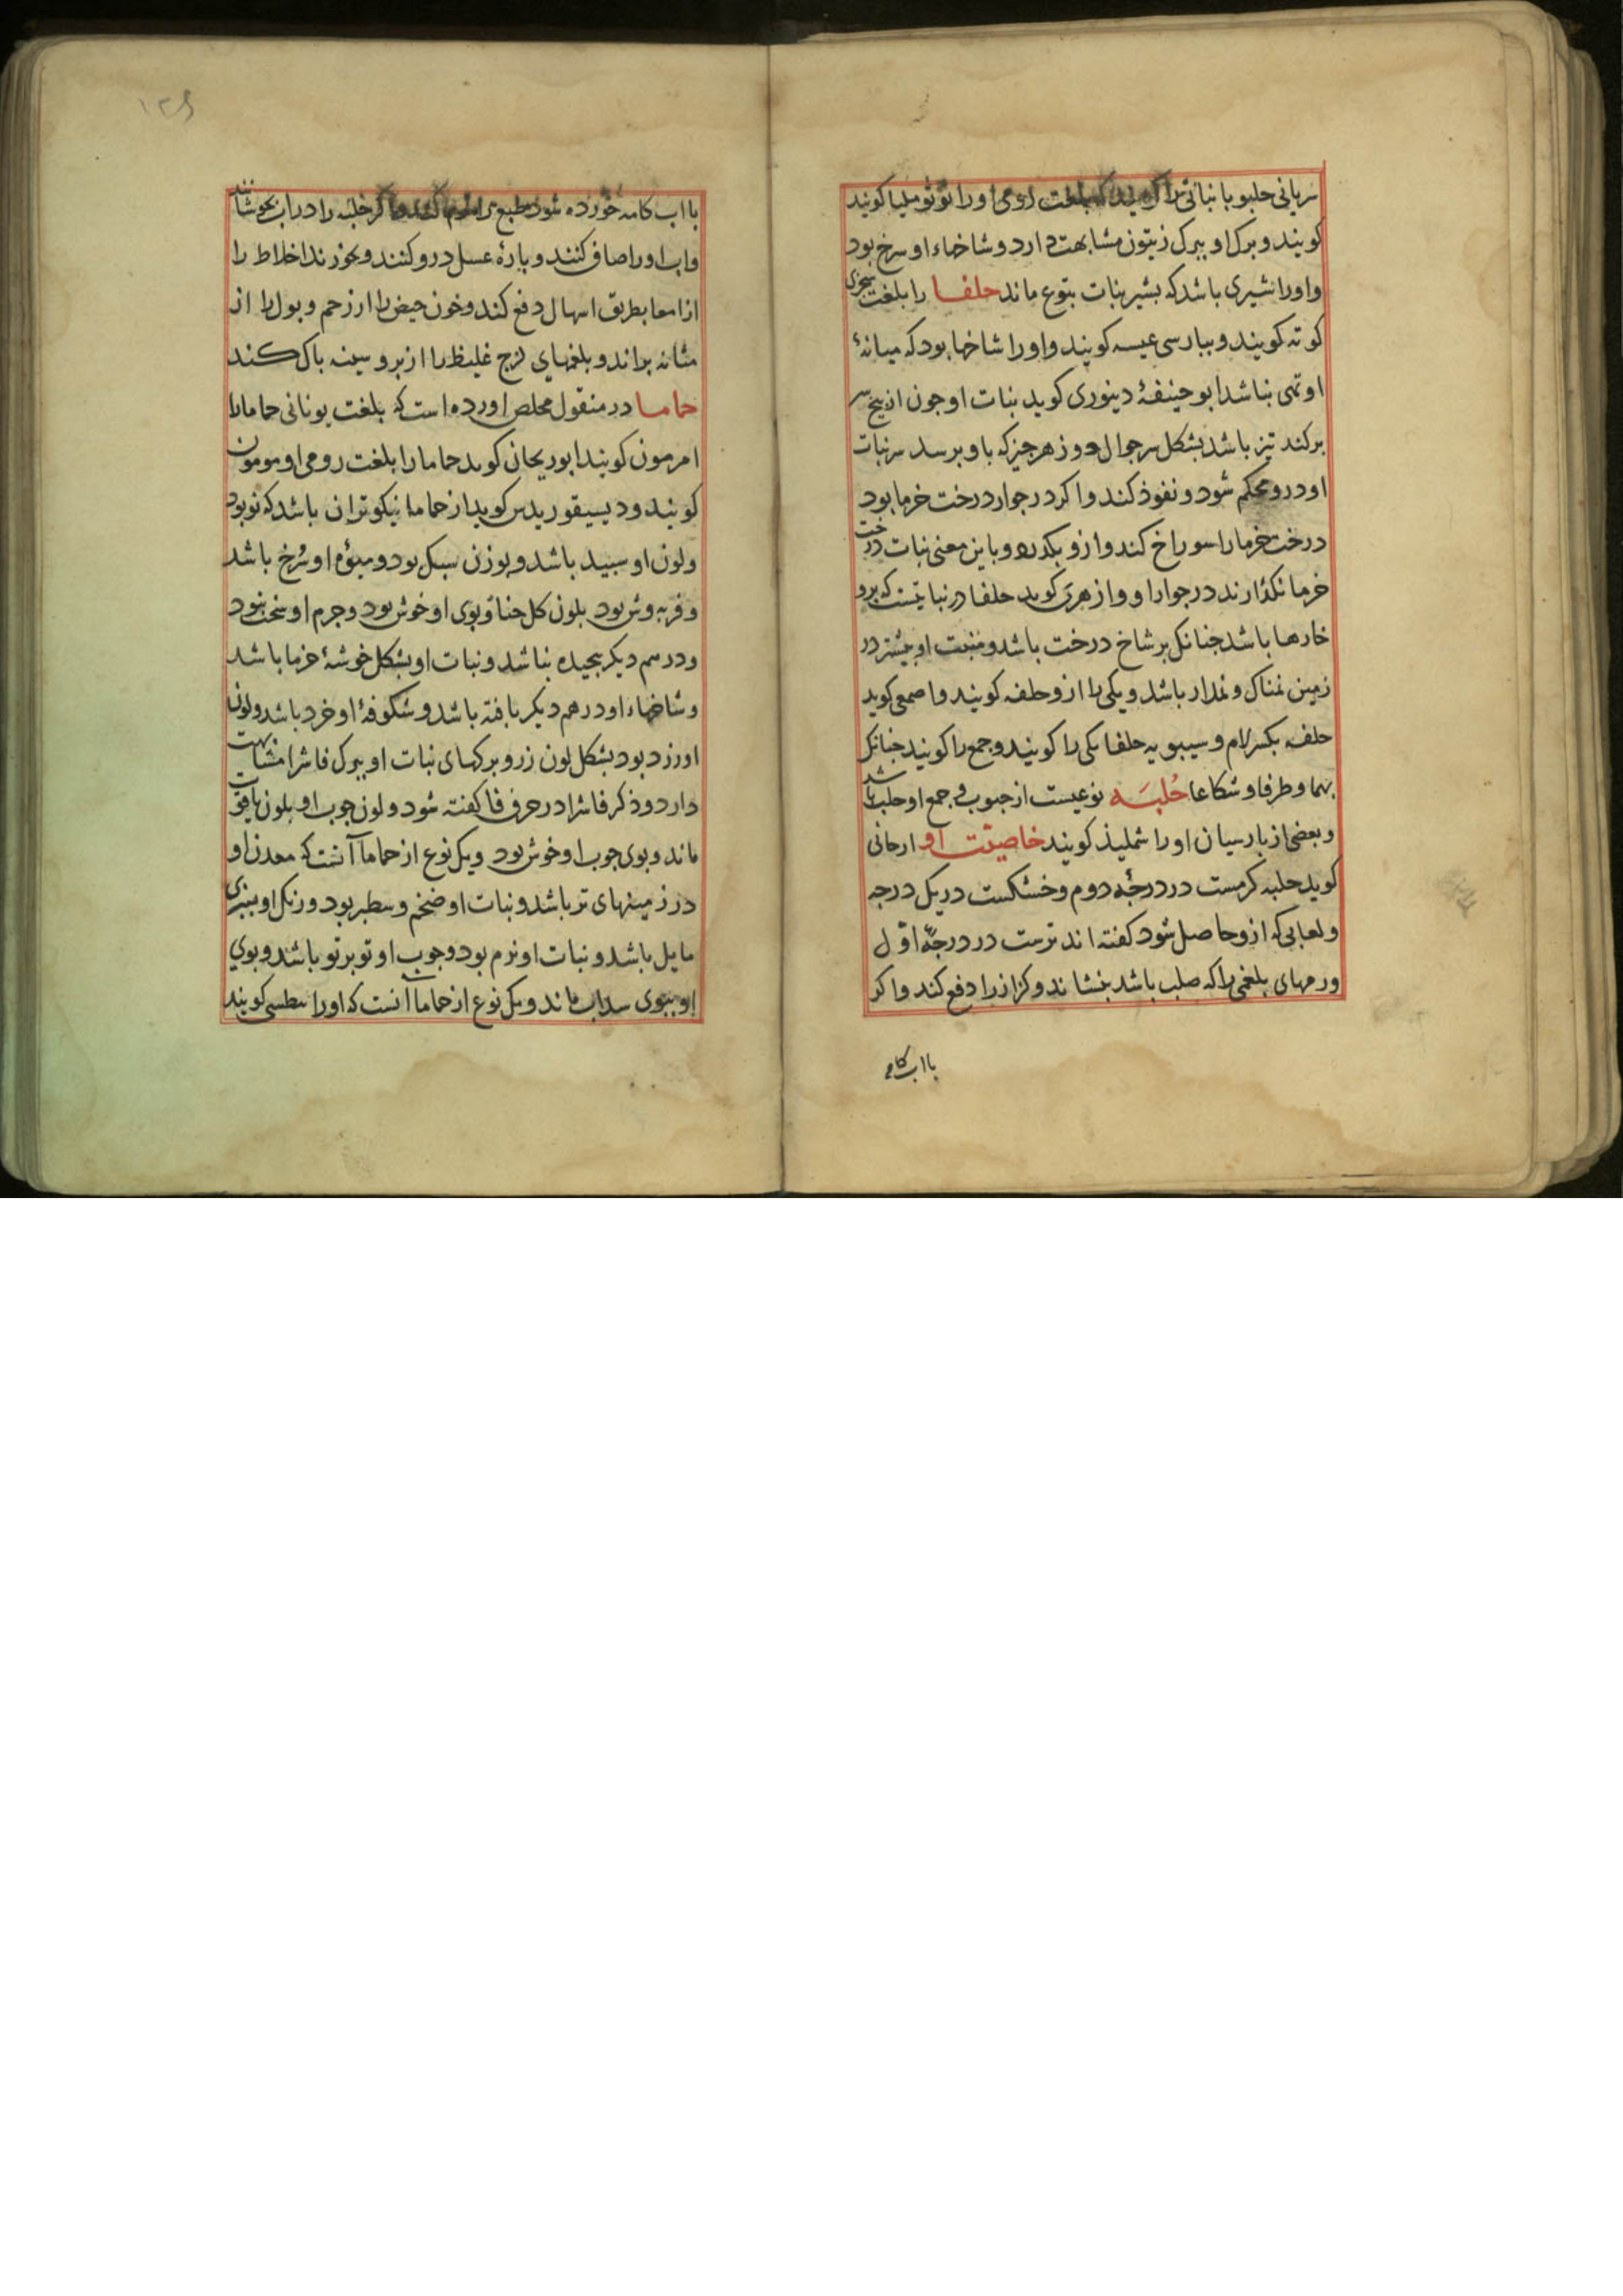 سریانی حلبوبا نباتی را کویند که بلغت رومی اورا توتوملیا کویند
کویند و برک او ببرک زیتون مشابهت دارد و شاخهاء او سرخ بود
و اورا شیری باشد که بشیر نبات یتوع ماند حلفا را بلغت سجزی
کوته کویند و ببارسی عیسه کویند و اورا شاخها بود که میانهٔ
او تهی نباشد ابو حنیفهٔ دینوری کوید نبات او جون از بیخ سر
برکند تیز باشد بشکل سر جوال دوز هر جیز که باو برسد سر نبات
او درو محکم شود و نفوذ کند و اکر در جوار درخت خرما بود
درخت خرما را سوراخ کند و ازو بکذرد و باین معنی نبات درخت
خرما نکذارند در جوار او و ازهری کوید حلفا در نباتیست که برو
خارها باشد جنانک بر شاخ درخت باشد و منبت او بیشتر در
زمین نمناک و نمدار باشد و یکی را ازو حلفه کویند و اصمعی کوید
حلفه بکسر لام و سیبویه حلفا یکی را کویند و جمع را کویند جنانک
بهما و طرفا و شکاعا حُلبَه نوعیست از حبوب و جمع او حلب باشد
و بعضی از بارسیان اورا شملیذ کویند خاصیّت او ارجانی
کوید حلبه کرمست در درجهٔ دوم و خشکست در یک درجه
و لعابی که ازو حاصل شود کفته اند ترست در درجهٔ اوّل
ورمهای بلغمی را که صلب باشد بنشاند و کزاز را دفع کند و اکر
بااب کامه
۱۲۹
بااب کامه خورده شود طبع را نرم کند و اکر حلبه را در اب بجوشانند
و اب او را صاف کنند و بارهٔ عسل درو کنند و بخورند اخلاط را
از امعا بطریق اسهال دفع کند و خون حیض را از رحم و بول را از
مثانه براند و بلغمهای لزج غلیظ را از بر و سینه باک کند
حماما در منقول مخلص اورده است که بلغت یونانی حماما را
امرمون کویند ابو ریحان کوید حماما را بلغت رومی اومومون
کویند و دیسیقوریدس کوید از حماما نیکوتر ان باشد که نو بود
و لون او سبید باشد و بوزن سبک بود و میوهٔ او سُرخ باشد
و فربه وش بود بلون کل حنا و بوی او خوش بود و جرم او سخت نبود
و در هم دیکر بیجیده نباشد و نبات او بشکل خوشهٔ خرما باشد
و شاخهاء او در هم دیکر بافته باشد و شکوفهٔ او خرد باشد و لون
او زرد بود بشکل لون زر و برکهای نبات او ببرک فاشرا مشابهت
دارد و ذکر فاشرا در حرف فا کفته شود و لون جوب او بلون یاقوت
ماند و بوی جوب او خوش بود و یک نوع از حماما آنست که معدن او
در زمینهای تر باشد و نبات او ضخم و سطبر بود و رنک او بسبزی
مایل باشد و نبات او نرم بود و جوب او تو برتو باشد و بوی
او ببوی سداب ماند و یک نوع از حماما آنست که اورا سطسی کویند